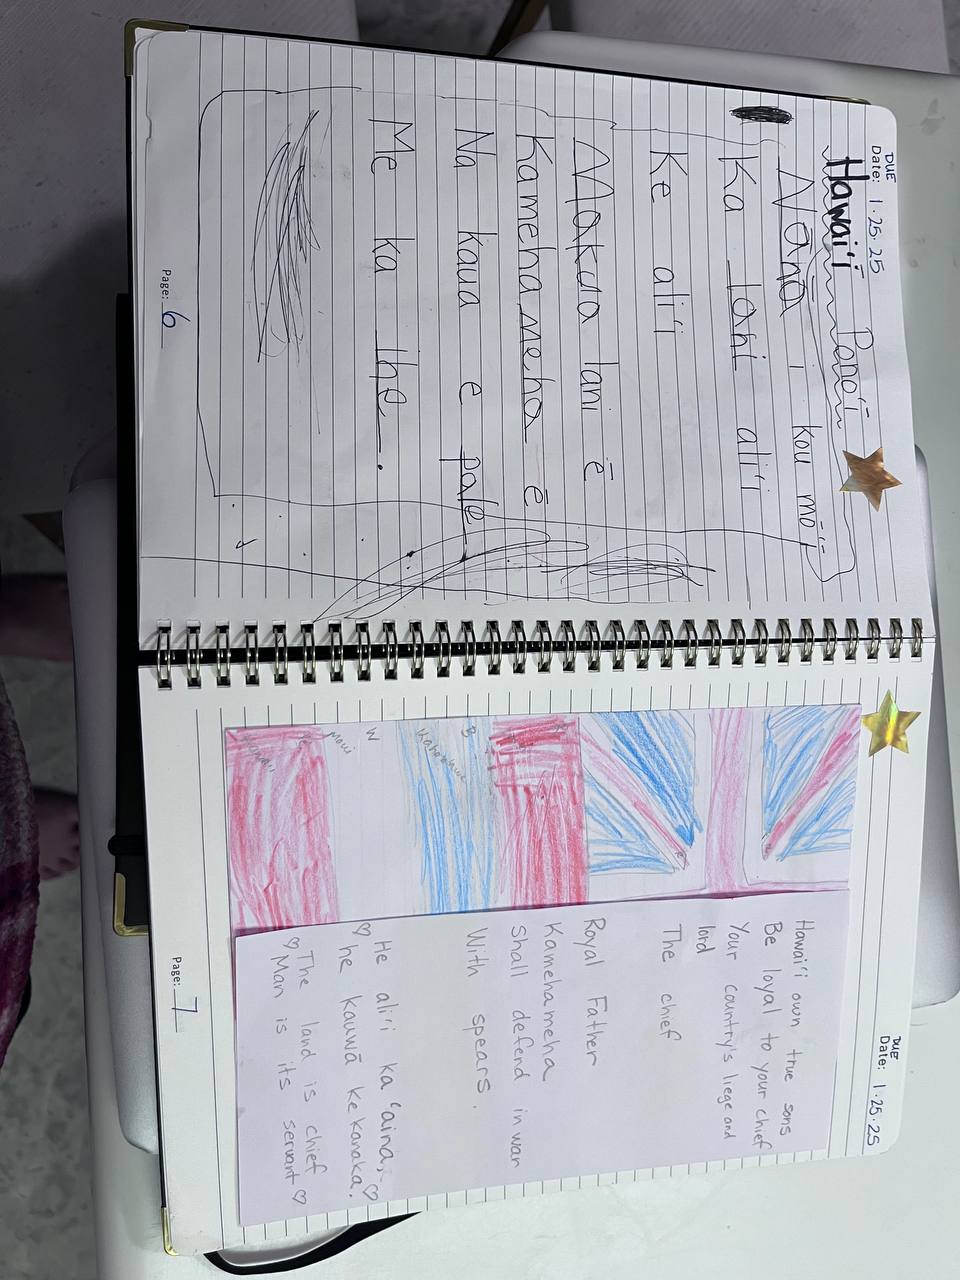 DUE
Date: 1.25.25
Hawai'i Pono'ī
Nānā i kou mō'ī
Ka lani ali'i
Ke ali'i
Makua lani ē
Kamehameha ē
Na kaua e pale
Me ka ihe.
Page: 6
DUE
Date: 1.25.25
Maui
Kahoolawe
Hawai'i own true sons
Be loyal to your chief
Your country's liege and
lord
The chief
Royal Father
Kamehameha
Shall defend in war
With spears.
He ali'i ka 'aina; ♡
♡ he kauwā ke kanaka.
♡ The land is chief
♡ Man is its servant ♡
Page: 7